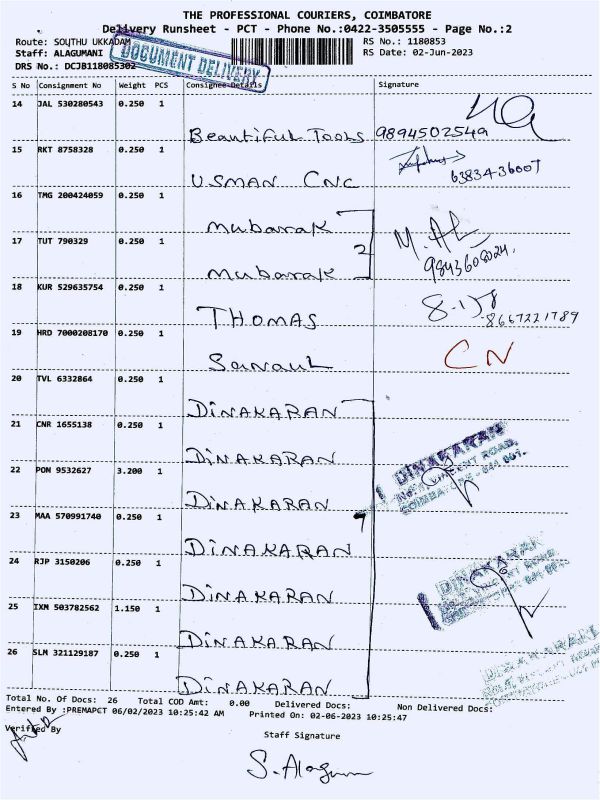 THE PROFESSIONAL COURIERS, COIMBATORE
Delivery Runsheet - PCT - Phone No.:0422-3505555 - Page No.:2
Route: SOUTHU UKKADAM RS No.: 1180853
Staff: ALAGUMANI RS Date: 02-Jun-2023
DOCUMENT DELIVERY
DRS No.: DCJB118085302
S No Consignment No Weight PCS Consignee Details Signature
14 JAL 530280543 0.250 1
Beautiful Tools 9894502549
15 RKT 8758328 0.250 1
USMAN CNC 63834-36007
16 TMG 200424059 0.250 1
mubarak
17 TUT 790329 0.250 1
2
mubarak
18 KUR 529635754 0.250 1
THOMAS 8667221789
19 HRD 7000208170 0.250 1
CN
20 TVL 6332864 0.250 1
DINAKARAN
21 CNR 1655138 0.250 1
DINAKARAN
DINAKARAN
22 PON 9532627 3.200 1
DINAKARAN
7
23 MAA 570991740 0.250 1
DINAKARAN
24 RJP 3150206 0.250 1
DINAKARAN
DINAKARAN
25 IXM 503782562 1.150 1
DINAKARAN
26 SLM 321129187 0.250 1
DINAKARAN
Total No. Of Docs: 26 Total COD Amt: 0.00 Delivered Docs: Non Delivered Docs:
Entered By :PREMAPCT 06/02/2023 10:25:42 AM Printed On: 02-06-2023 10:25:47
Verified By
Staff Signature